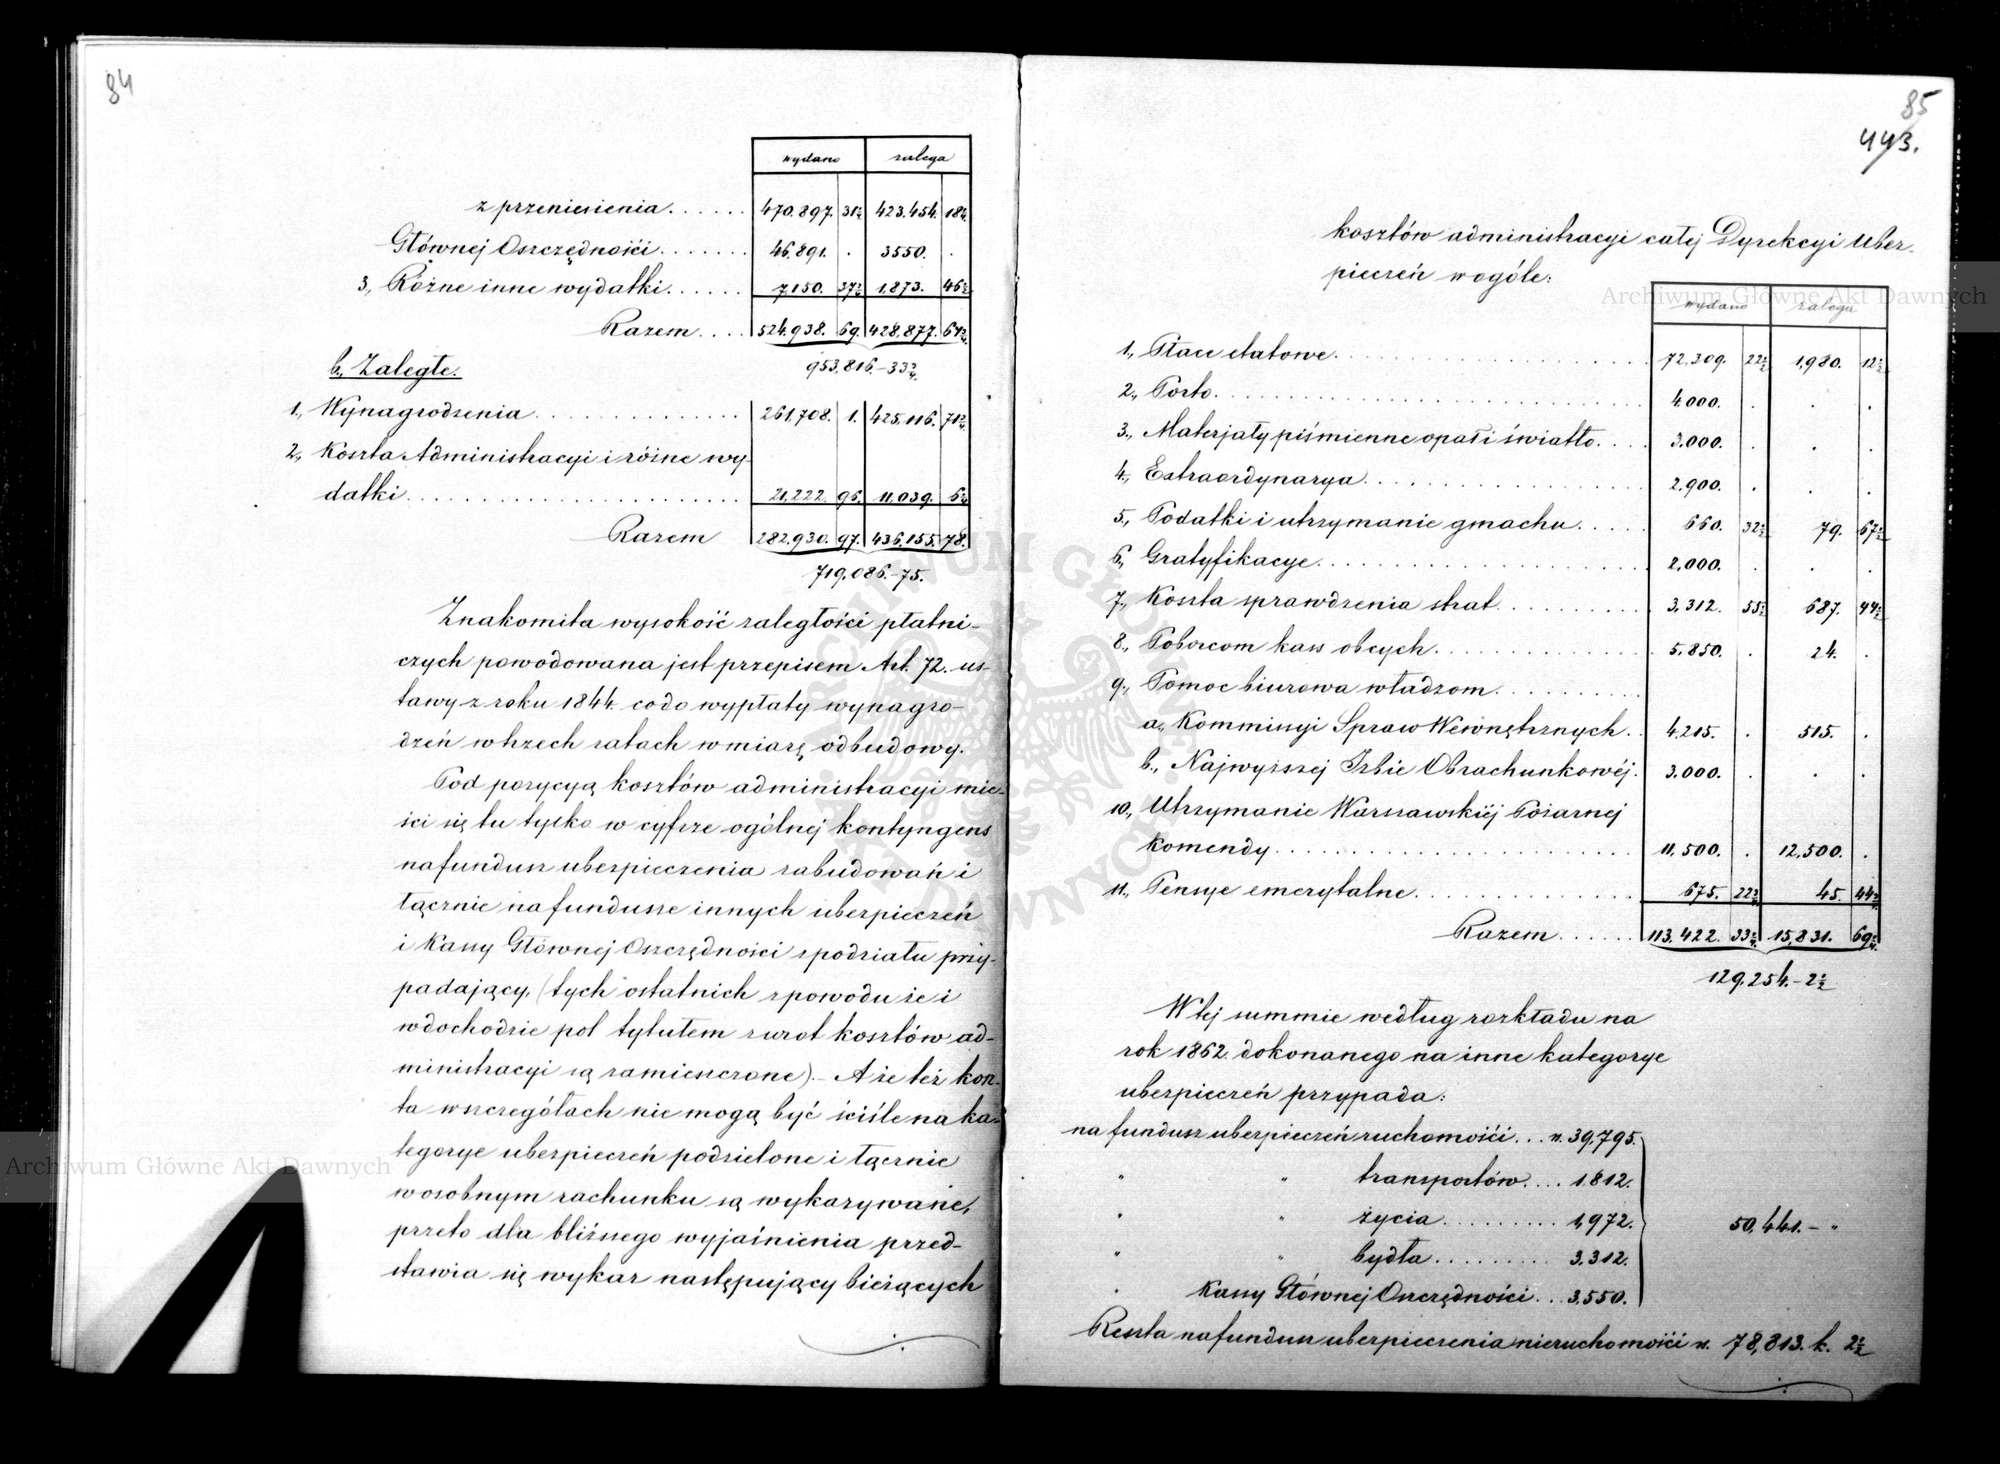 84
wydano zalega
z przeniesienia . . . . . . 470.897. 31½ 423.454. 18¼
Głównej Oszczędności . . . . . . 46.891. . 3550. .
3., Różne inne wydatki . . . . . . 7.150. 37½ 1,873. 46½
Razem . . . . 524.938. 69. 428,877. 64¾
953,816.-33¾.
b., Zaległe.
1., Wynagrodzenia . . . . . . 261,708. 1. 425,116. 71¾
2., Koszta Administracyi i różne wy-
datki . . . . . . 21,222. 96. 11,039. 6¼
Razem 282.930. 97. 436,155. 78.
719,086.-75.
Znakomita wysokość zaległości płatni-
czych powodowana jest przepisem Art. 72. us-
tawy z roku 1844. co do wypłaty wynagro-
dzeń w trzech ratach w miarę odbudowy.
Pod pozycyą kosztów administracyi mie-
ści się tu tylko w cyfrze ogólnej kontyngens
na fundusz ubezpieczenia zabudowań i
łącznie na fundusze innych ubezpieczeń
i Kassy Głównej Oszczędności z podziału przy-
padający, (tych ostatnich z powodu że i
w dochodzie pot tytułem zwrot kosztów ad-
ministracyi są zamieszczone).- A że też kosz-
ta w szczegółach nie mogą być ściśle na ka-
tegorye ubezpieczeń podzielone i łącznie
w osobnym rachunku są wykazywane,
przeto dla bliższego wyjaśnienia przed-
stawia się wykaz następujący bieżących
85
443.
kosztów administracyi całej Dyrekcyi Ubez-
pieczeń w ogóle:
wydano zalega
1., Płace etatowe . . . . . . 72.309. 22½ 1,980. 12½
2., Porto . . . . . . 4.000. . . .
3., Materjały piśmienne opał i światło . . . . 3.000. . . .
4., Extraordynarya . . . . . . 2,900. . . .
5., Podatki i utrzymanie gmachu . . . . . 660. 32½ 79. 67½
6., Gratyfikacye . . . . . . 2.000. . . .
7., Koszta sprawdzenia strat . . . . . . 3.312. 55½ 687. 44½
8., Poborcom kass obcych . . . . . . 5.850. . 24. .
9., Pomoc biurowa władzom . . . . . .
a., Kommissyi Spraw Wewnętrznych . . 4.215. . 515. .
b., Najwyższej Izbie Obrachunkowéj . 3.000. . . .
10., Utrzymanie Warszawskiéj Pożarnej
Komendy . . . . . . 11,500. . 12,500. .
11., Pensye emerytalne . . . . . . 675. 22¾ 45. 44¾
Razem . . . . . . 113,422. 33¾ 15,831. 69¾
129.254.-2½
W tej summie według rozkładu na
rok 1862. dokonanego na inne kategorye
ubezpieczeń przypada:
na fundusz ubezpieczeń ruchomości . . . rs. 39,795.
" " transportów . . . . 1,812.
" " życia . . . . . . 1,972. 50,441.- "
" " bydła . . . . . . 3.312.
" Kassy Głównej Oszczędności . . . 3.550.
Reszta na fundusz ubezpieczenia nieruchomości rs. 78,813. k. 2½
Archiwum Główne Akt Dawnych
Archiwum Główne Akt Dawnych
ARCHIWUM GŁÓWNE AKT DAWNYCH